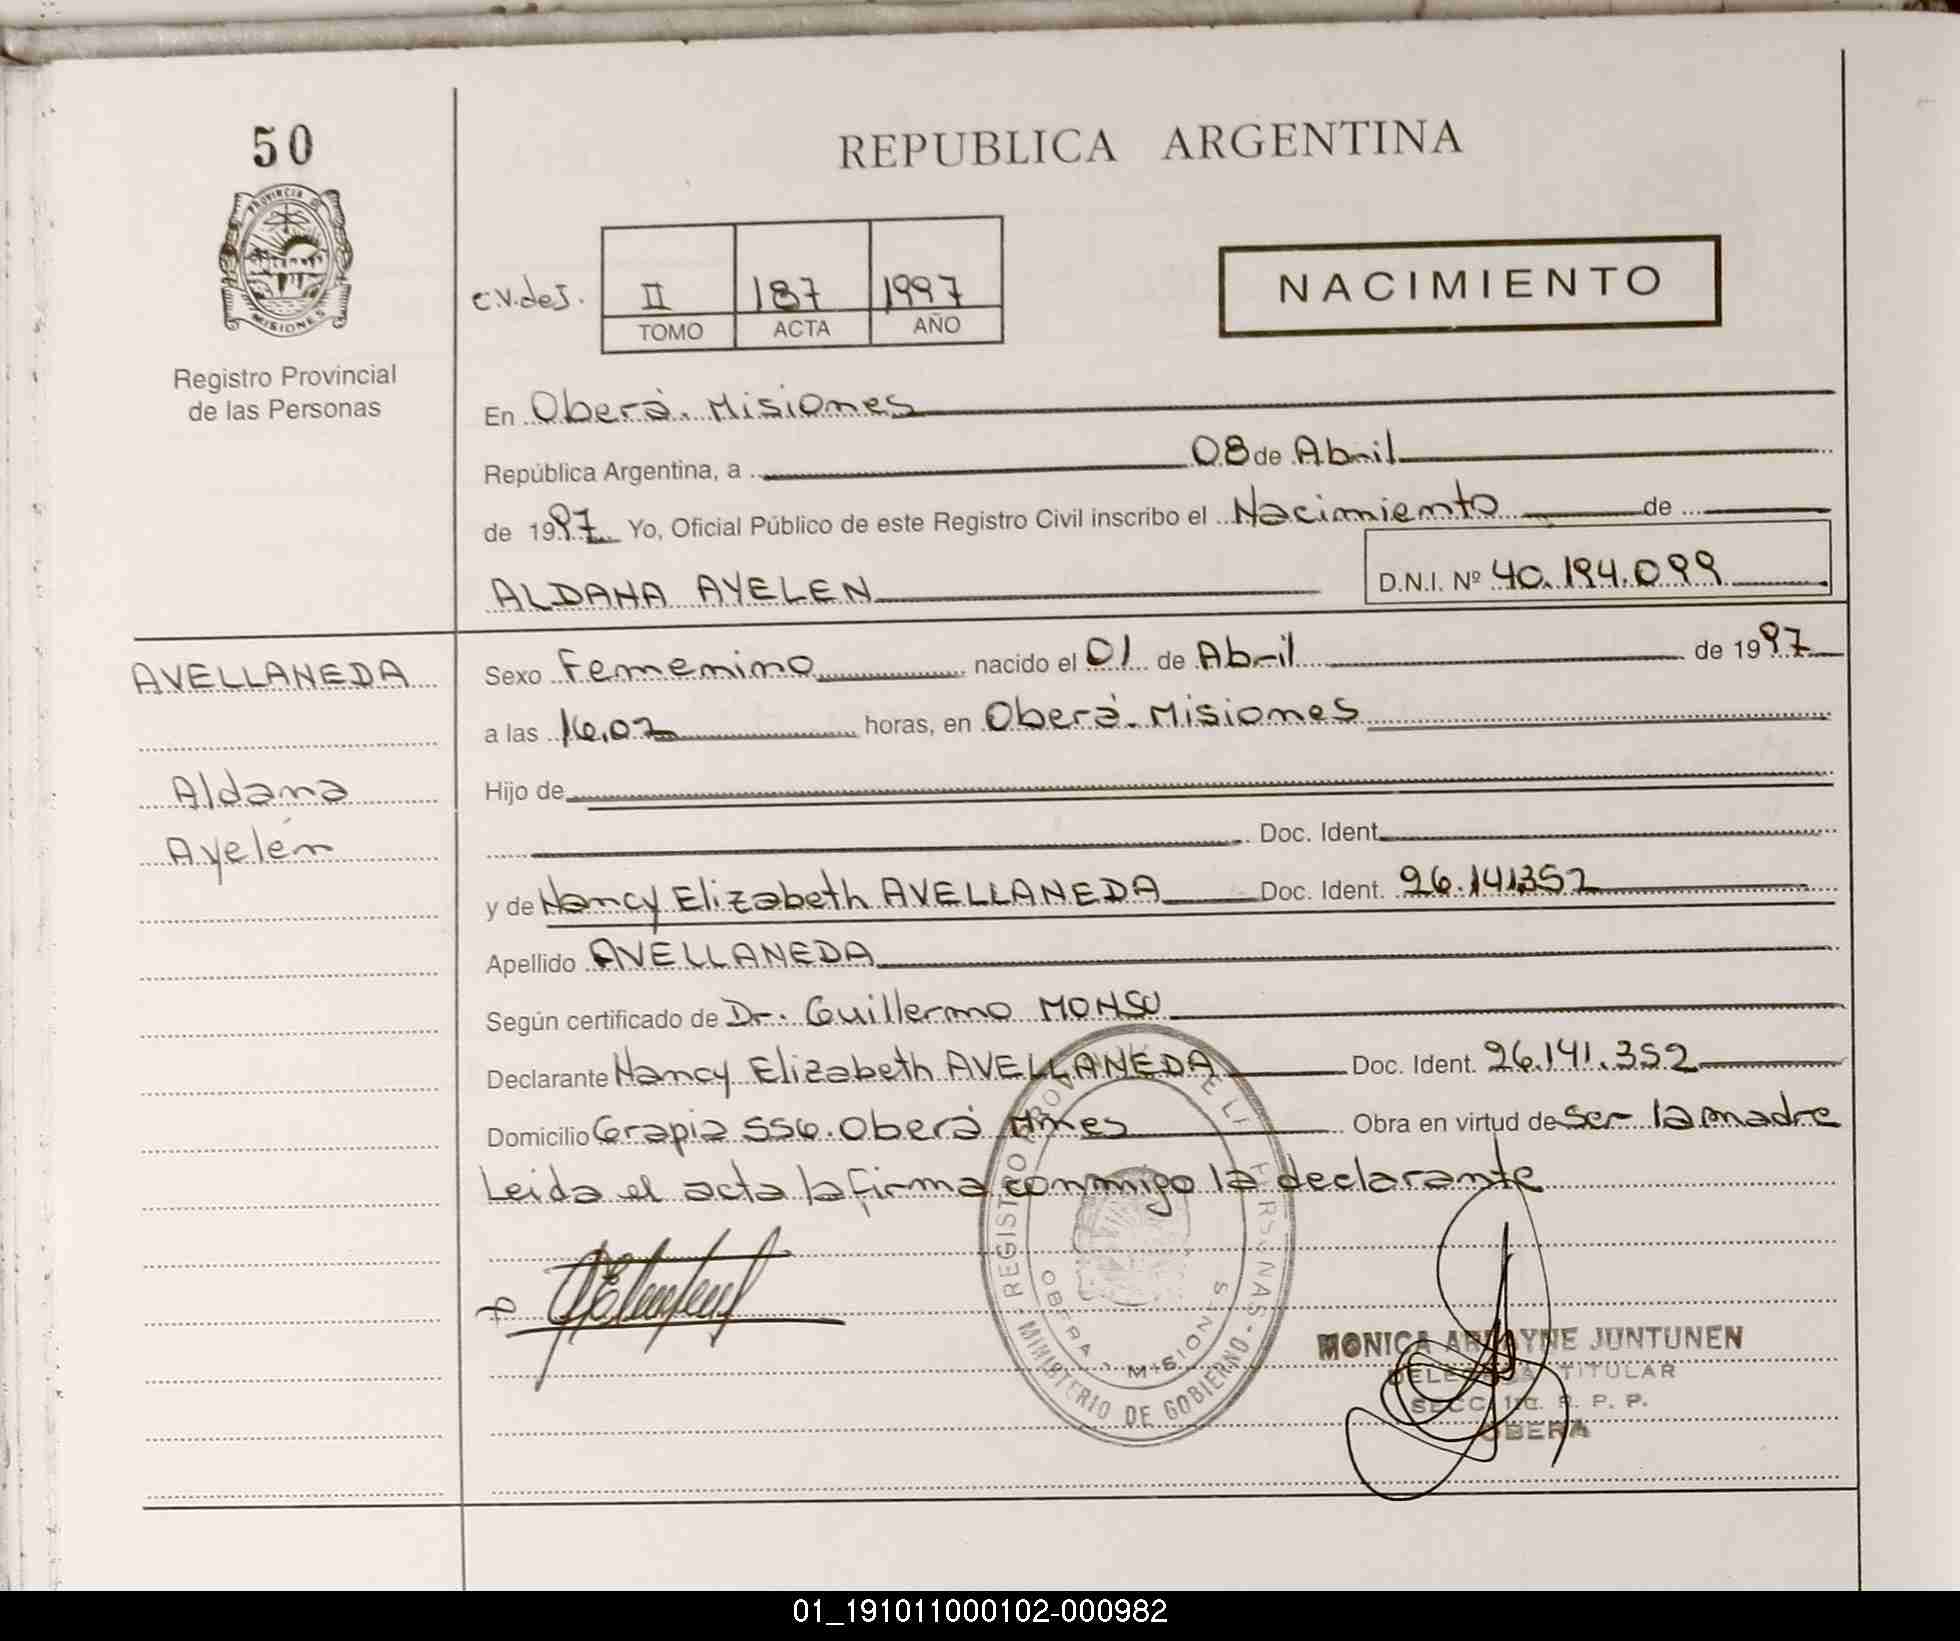 50
REPUBLICA ARGENTINA
PROVINCIA D
MISIONES
Registro Provincial
de las Personas
C.V.deJ.
II 187 1997
TOMO ACTA AÑO
NACIMIENTO
En Oberá. Misiones
República Argentina, a 08 de Abril
de 1997 Yo, Oficial Público de este Registro Civil inscribo el Nacimiento de
ALDANA AYELEN D.N.I. Nº 40.194.099
AVELLANEDA
Aldana
Ayelén
Sexo Femenino nacido el 01 de Abril de 1997
a las 16,02 horas, en Oberá. Misiones
Hijo de
Doc. Ident.
y de Nancy Elizabeth AVELLANEDA Doc. Ident. 26.141.352
Apellido AVELLANEDA
Según certificado de Dr. Guillermo MONSU
Declarante Nancy Elizabeth AVELLANEDA Doc. Ident. 26.141.352
Domicilio Grapia 556. Oberá Mnes Obra en virtud de ser la madre
Leida el acta la firma conmigo la declarante
REGISTRO
OBERA MISIONES
MINISTERIO DE GOBIERNO
MONICA JUNTUNEN
DELEGADA TITULAR
SECC. 1ra. R. P. P.
OBERA
01_191011000102-000982